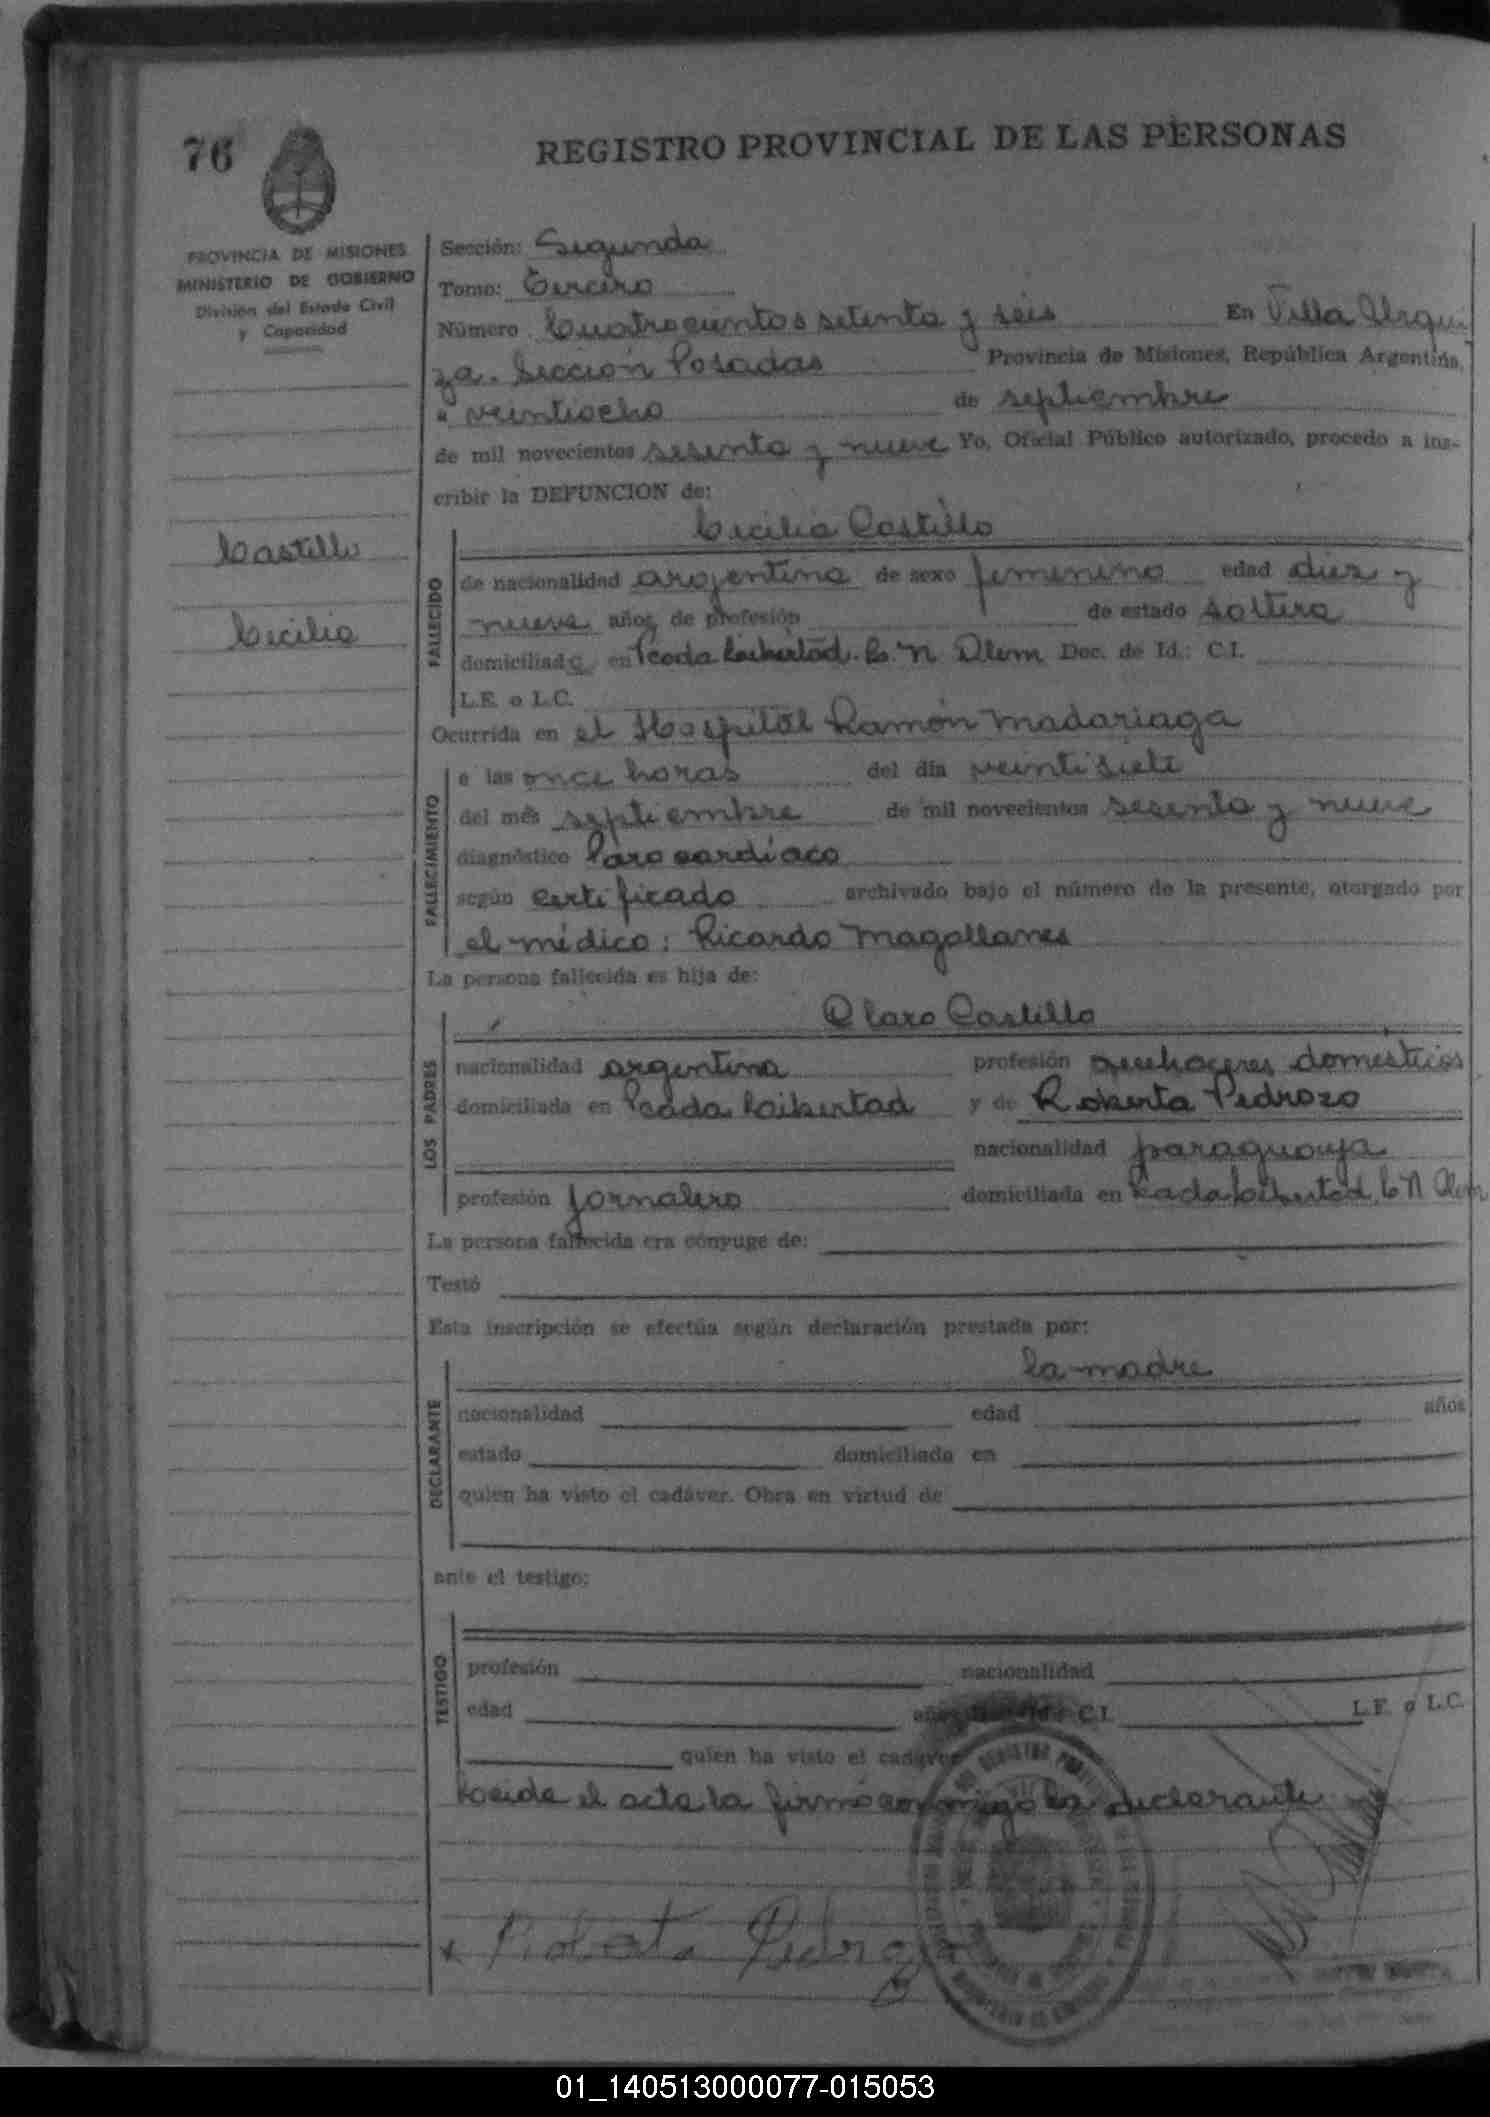 76
REGISTRO PROVINCIAL DE LAS PERSONAS
PROVINCIA DE MISIONES
MINISTERIO DE GOBIERNO
División del Estado Civil
y Capacidad
Castillo
Cecilia
Sección: Segunda
Tomo: Tercero
Número Cuatrocientos setenta y seis En Villa Urqui
za. Sección Posadas Provincia de Misiones, República Argentina,
a veintiocho de septiembre
de mil novecientos sesenta y nueve Yo, Oficial Público autorizado, procedo a ins-
cribir la DEFUNCION de:
FALLECIDO
Cecilia Castillo
de nacionalidad argentina de sexo femenino edad diez y
nueve años, de profesión de estado soltera
domiciliada en Pcada Libertad. L. N. Alem Doc. de Id.: C.I.
L.E. o L.C.
Ocurrida en el Hospital Ramón Madariaga
FALLECIMIENTO
a las once horas del día veintisiete
del més septiembre de mil novecientos sesenta y nueve
diagnóstico Paro cardíaco
según certificado archivado bajo el número de la presente, otorgado por
el médico: Ricardo Magallanes
La persona fallecida es hija de:
LOS PADRES
Claro Castillo
nacionalidad argentina profesión quehaceres domésticos
domiciliada en Pcada Libertad y de Roberta Pedrozo
nacionalidad paraguaya
profesión jornalero domiciliada en Pcada Libertad L N Alem
La persona fallecida era cónyuge de:
Testó
Esta inscripción se efectúa según declaración prestada por:
DECLARANTE
la madre
nacionalidad edad años
estado domiciliada en
quien ha visto el cadáver. Obra en virtud de
ante el testigo:
TESTIGO
profesión nacionalidad
edad C.I. L.E. o L.C.
quien ha visto el cadáver
Leida el acta la firmó conmigo la declarante
Roberta Pedrozo
01_140513000077-015053